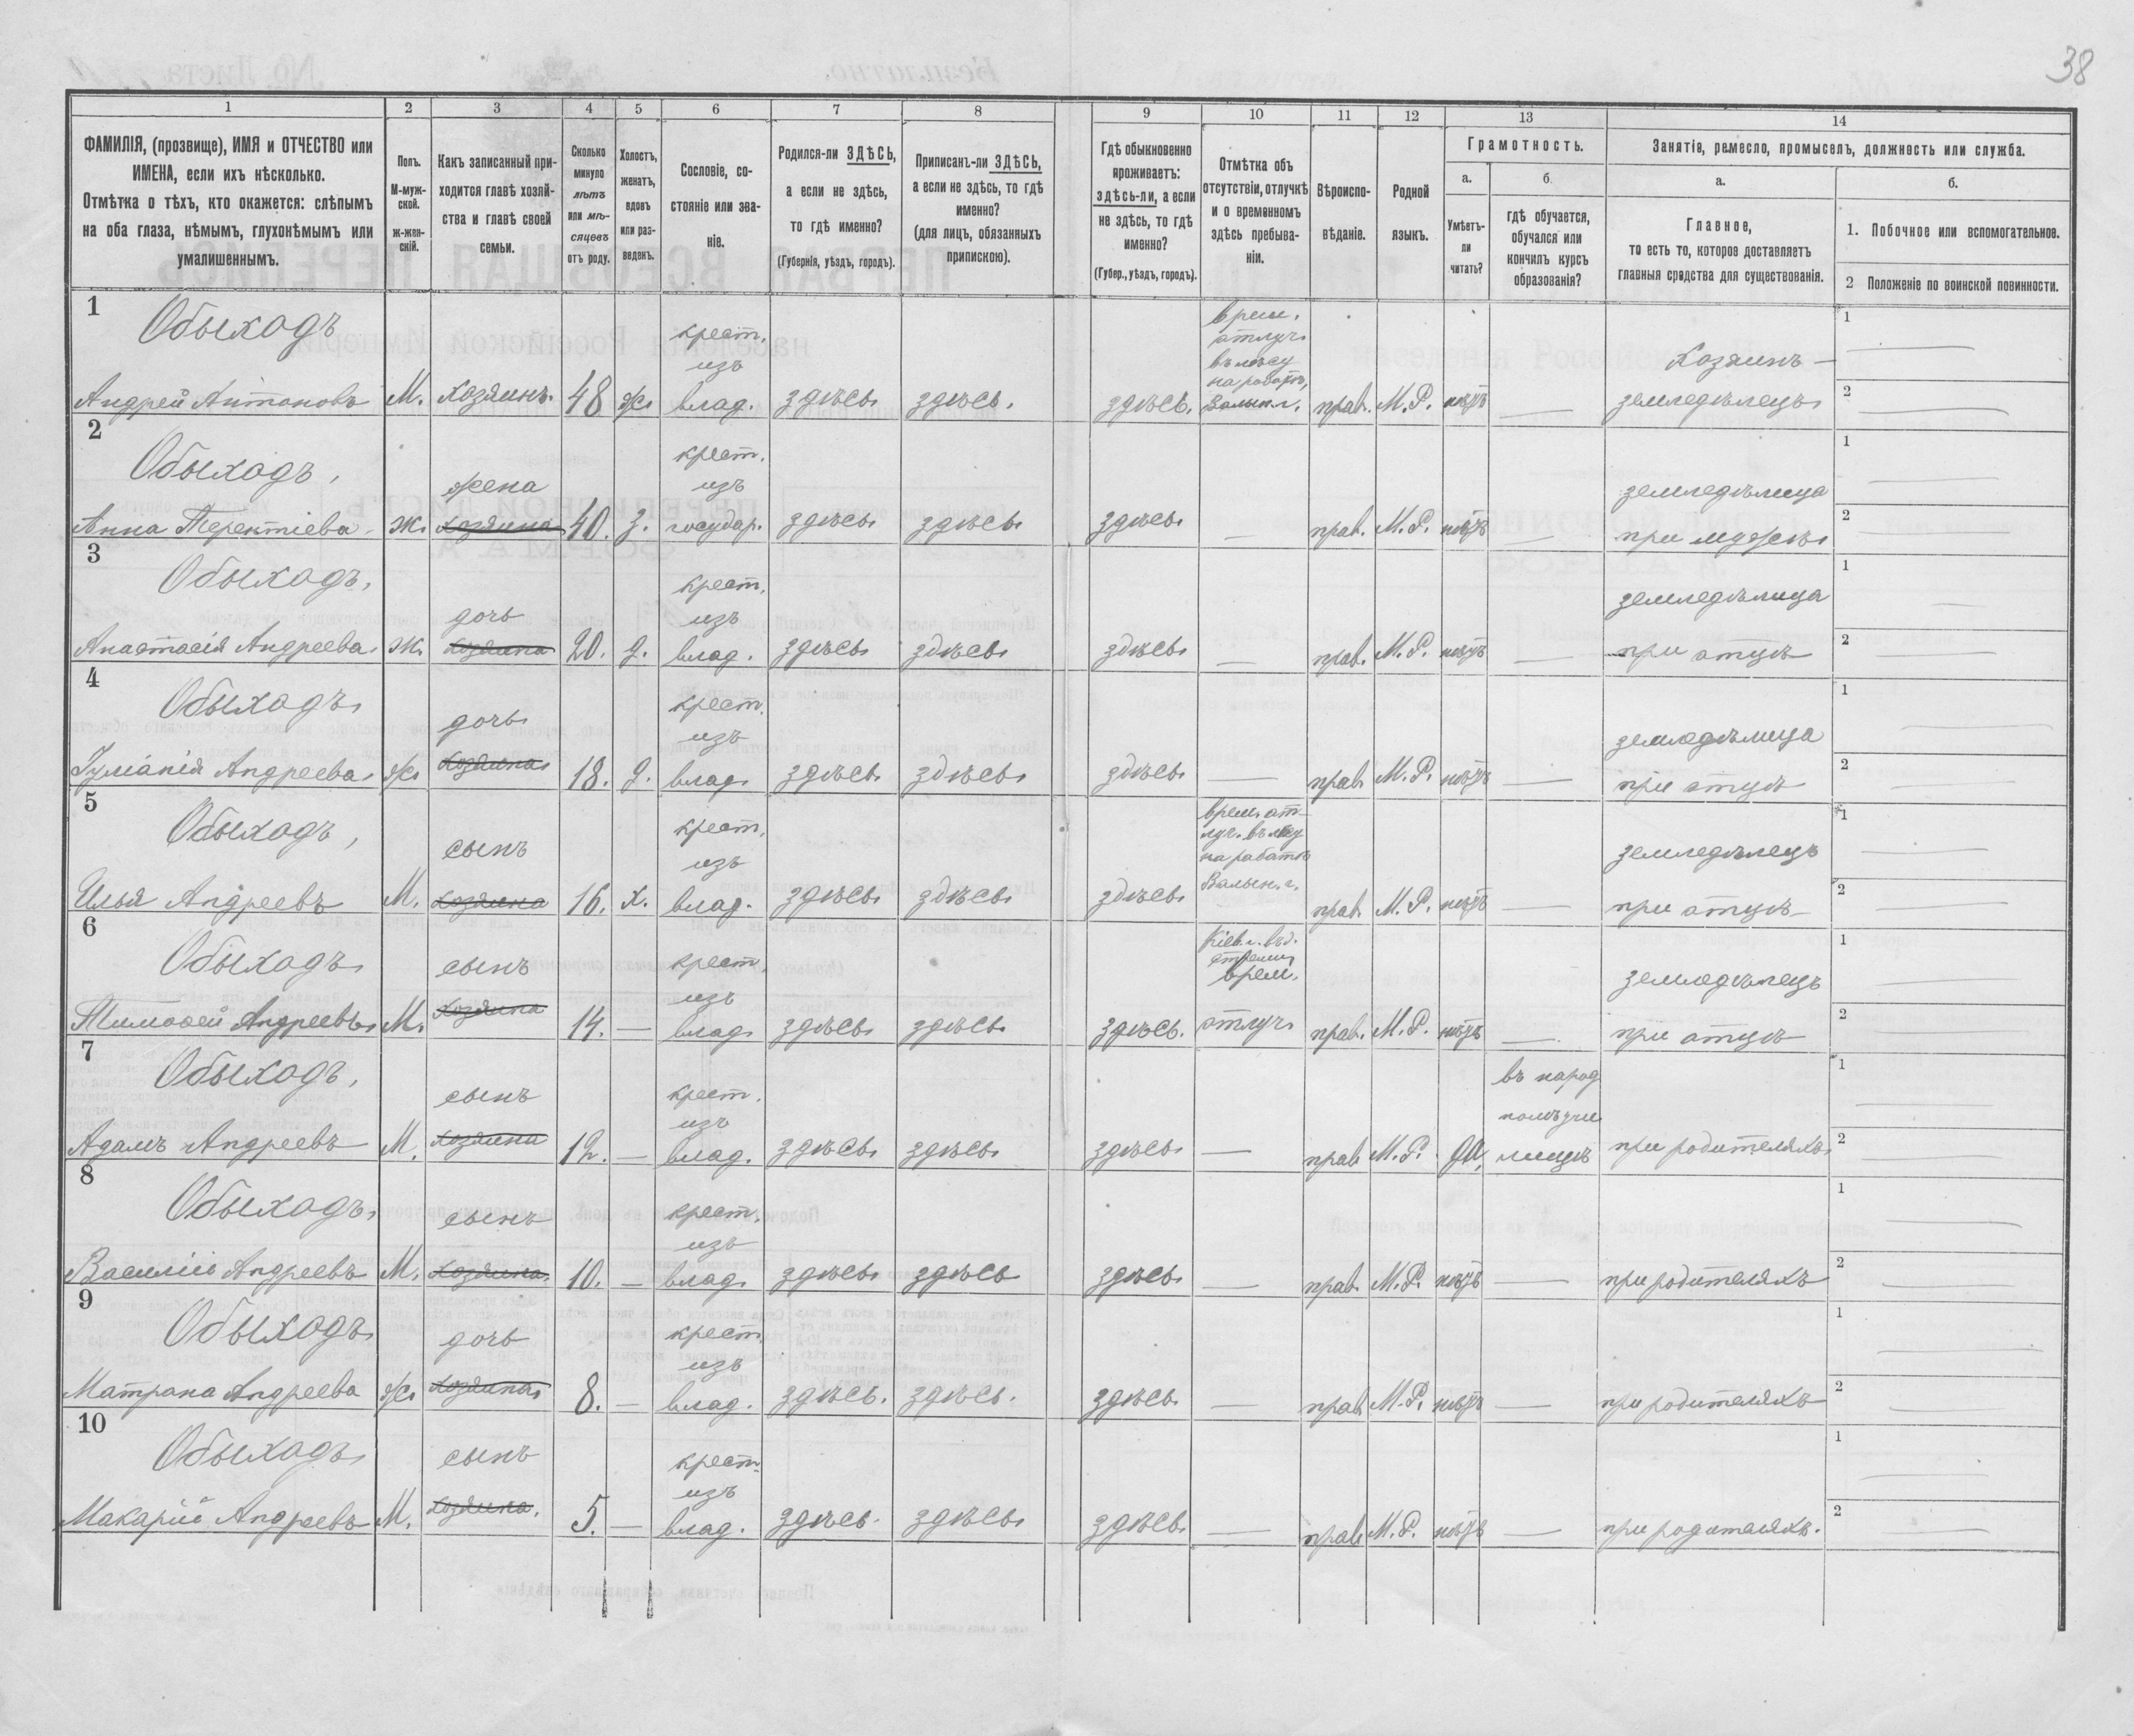 38
1 2 3 4 5 6 7 8 9 10 11 12 13 14
ФАМИЛІЯ, (прозвище), ИМЯ и ОТЧЕСТВО или
ИМЕНА, если ихъ нѣсколько.
Отмѣтка о тѣхъ, кто окажется: слѣпымъ
на оба глаза, нѣмымъ, глухонѣмымъ или
умалишеннымъ.
Полъ.
М-муж-
ской.
ж-жен-
скій.
Какъ записанный при-
ходится главѣ хозяй-
ства и главѣ своей
семьи.
Сколько
минуло
лѣтъ
или мѣ-
сяцевъ
отъ роду.
Холостъ,
женатъ,
вдовъ
или раз-
веденъ.
Сословіе, со-
стояніе или зва-
ніе.
Родился-ли ЗДѢСЬ,
а если не здѣсь,
то гдѣ именно?
(Губернія, уѣздъ, городъ).
Приписанъ-ли ЗДѢСЬ,
а если не здѣсь, то гдѣ
именно?
(для лицъ, обязанныхъ
припискою).
Гдѣ обыкновенно
проживаетъ:
ЗДѢСЬ-ЛИ, а если
не здѣсь, то гдѣ
именно?
(Губер., уѣздъ, городъ).
Отмѣтка объ
отсутствіи, отлучкѣ
и о временномъ
здѣсь пребыва-
ніи.
Вѣроиспо-
вѣданіе.
Родной
языкъ.
Грамотность.
а.
Умѣетъ-
ли
читать?
б.
гдѣ обучается,
обучался или
кончилъ курсъ
образованія?
Занятіе, ремесло, промыселъ, должность или служба.
а.
Главное,
то есть то, которое доставляетъ
главныя средства для существованія.
б.
1. Побочное или вспомогательное.
2 Положеніе по воинской повинности.
1
Обыходъ
Андрей Антоновъ М. хозяинъ. 48 ж.
крест.
изъ
влад. здѣсь здѣсь. здѣсь.
врем.
отлуч.
въ лѣсу
на работѣ,
Волын. г. прав. М.Р. нѣтъ —
Хозяинъ —
земледѣлецъ
1 —
2 —
2
Обыходъ,
Анна Терентіева ж.
жена
хозяина 40. з.
крест.
изъ
государ. здѣсь здѣсь здѣсь — прав. М.Р. нѣтъ —
земледѣлица
при мужѣ
1
2
3
Обыходъ,
Анастасія Андреева ж.
дочь
хозяина 20. д.
крест.
изъ
влад. здѣсь здѣсь здѣсь — прав. М.Р. нѣтъ —
земледѣлица
при отцѣ
1
2
4
Обыходъ
Іуліанія Андреева ж.
дочь
хозяина 18. д.
крест.
изъ
влад. здѣсь здѣсь здѣсь — прав. М.Р. нѣтъ —
земледѣлица
при отцѣ
1
2
5
Обыходъ,
Илья Андреевъ М.
сынъ
хозяина 16. х.
крест.
изъ
влад. здѣсь здѣсь здѣсь
врем. от-
луч. въ лѣсу
на работѣ
Волын. г. прав. М.Р. нѣтъ —
земледѣлецъ
при отцѣ
1
2
6
Обыходъ
Тимофей Андреевъ М.
сынъ
хозяина 14. —
крест.
изъ
влад. здѣсь здѣсь здѣсь.
Кіев. г.
врем.
отлуч. прав. М.Р. нѣтъ —
земледѣлецъ
при отцѣ
1
2
7
Обыходъ,
Адамъ Андреевъ М.
сынъ
хозяина 12. —
крест.
изъ
влад. здѣсь здѣсь здѣсь — прав. М.Р. да,
въ народ
номъ учи
лищѣ
при родителяхъ
1
2
8
Обыходъ,
Василій Андреевъ М.
сынъ
хозяина 10. —
крест.
изъ
влад. здѣсь здѣсь здѣсь — прав. М.Р. нѣтъ —
при родителяхъ
1
2
9
Обыходъ
Матрона Андреева ж.
дочь
хозяина 8. —
крест.
изъ
влад. здѣсь. здѣсь. здѣсь — прав. М.Р. нѣтъ —
при родителяхъ
1
2
10
Обыходъ
Макарій Андреевъ М.
сынъ
хозяина. 5. —
крест.
изъ
влад. здѣсь. здѣсь здѣсь — прав. М.Р. нѣтъ —
при родителяхъ.
1
2